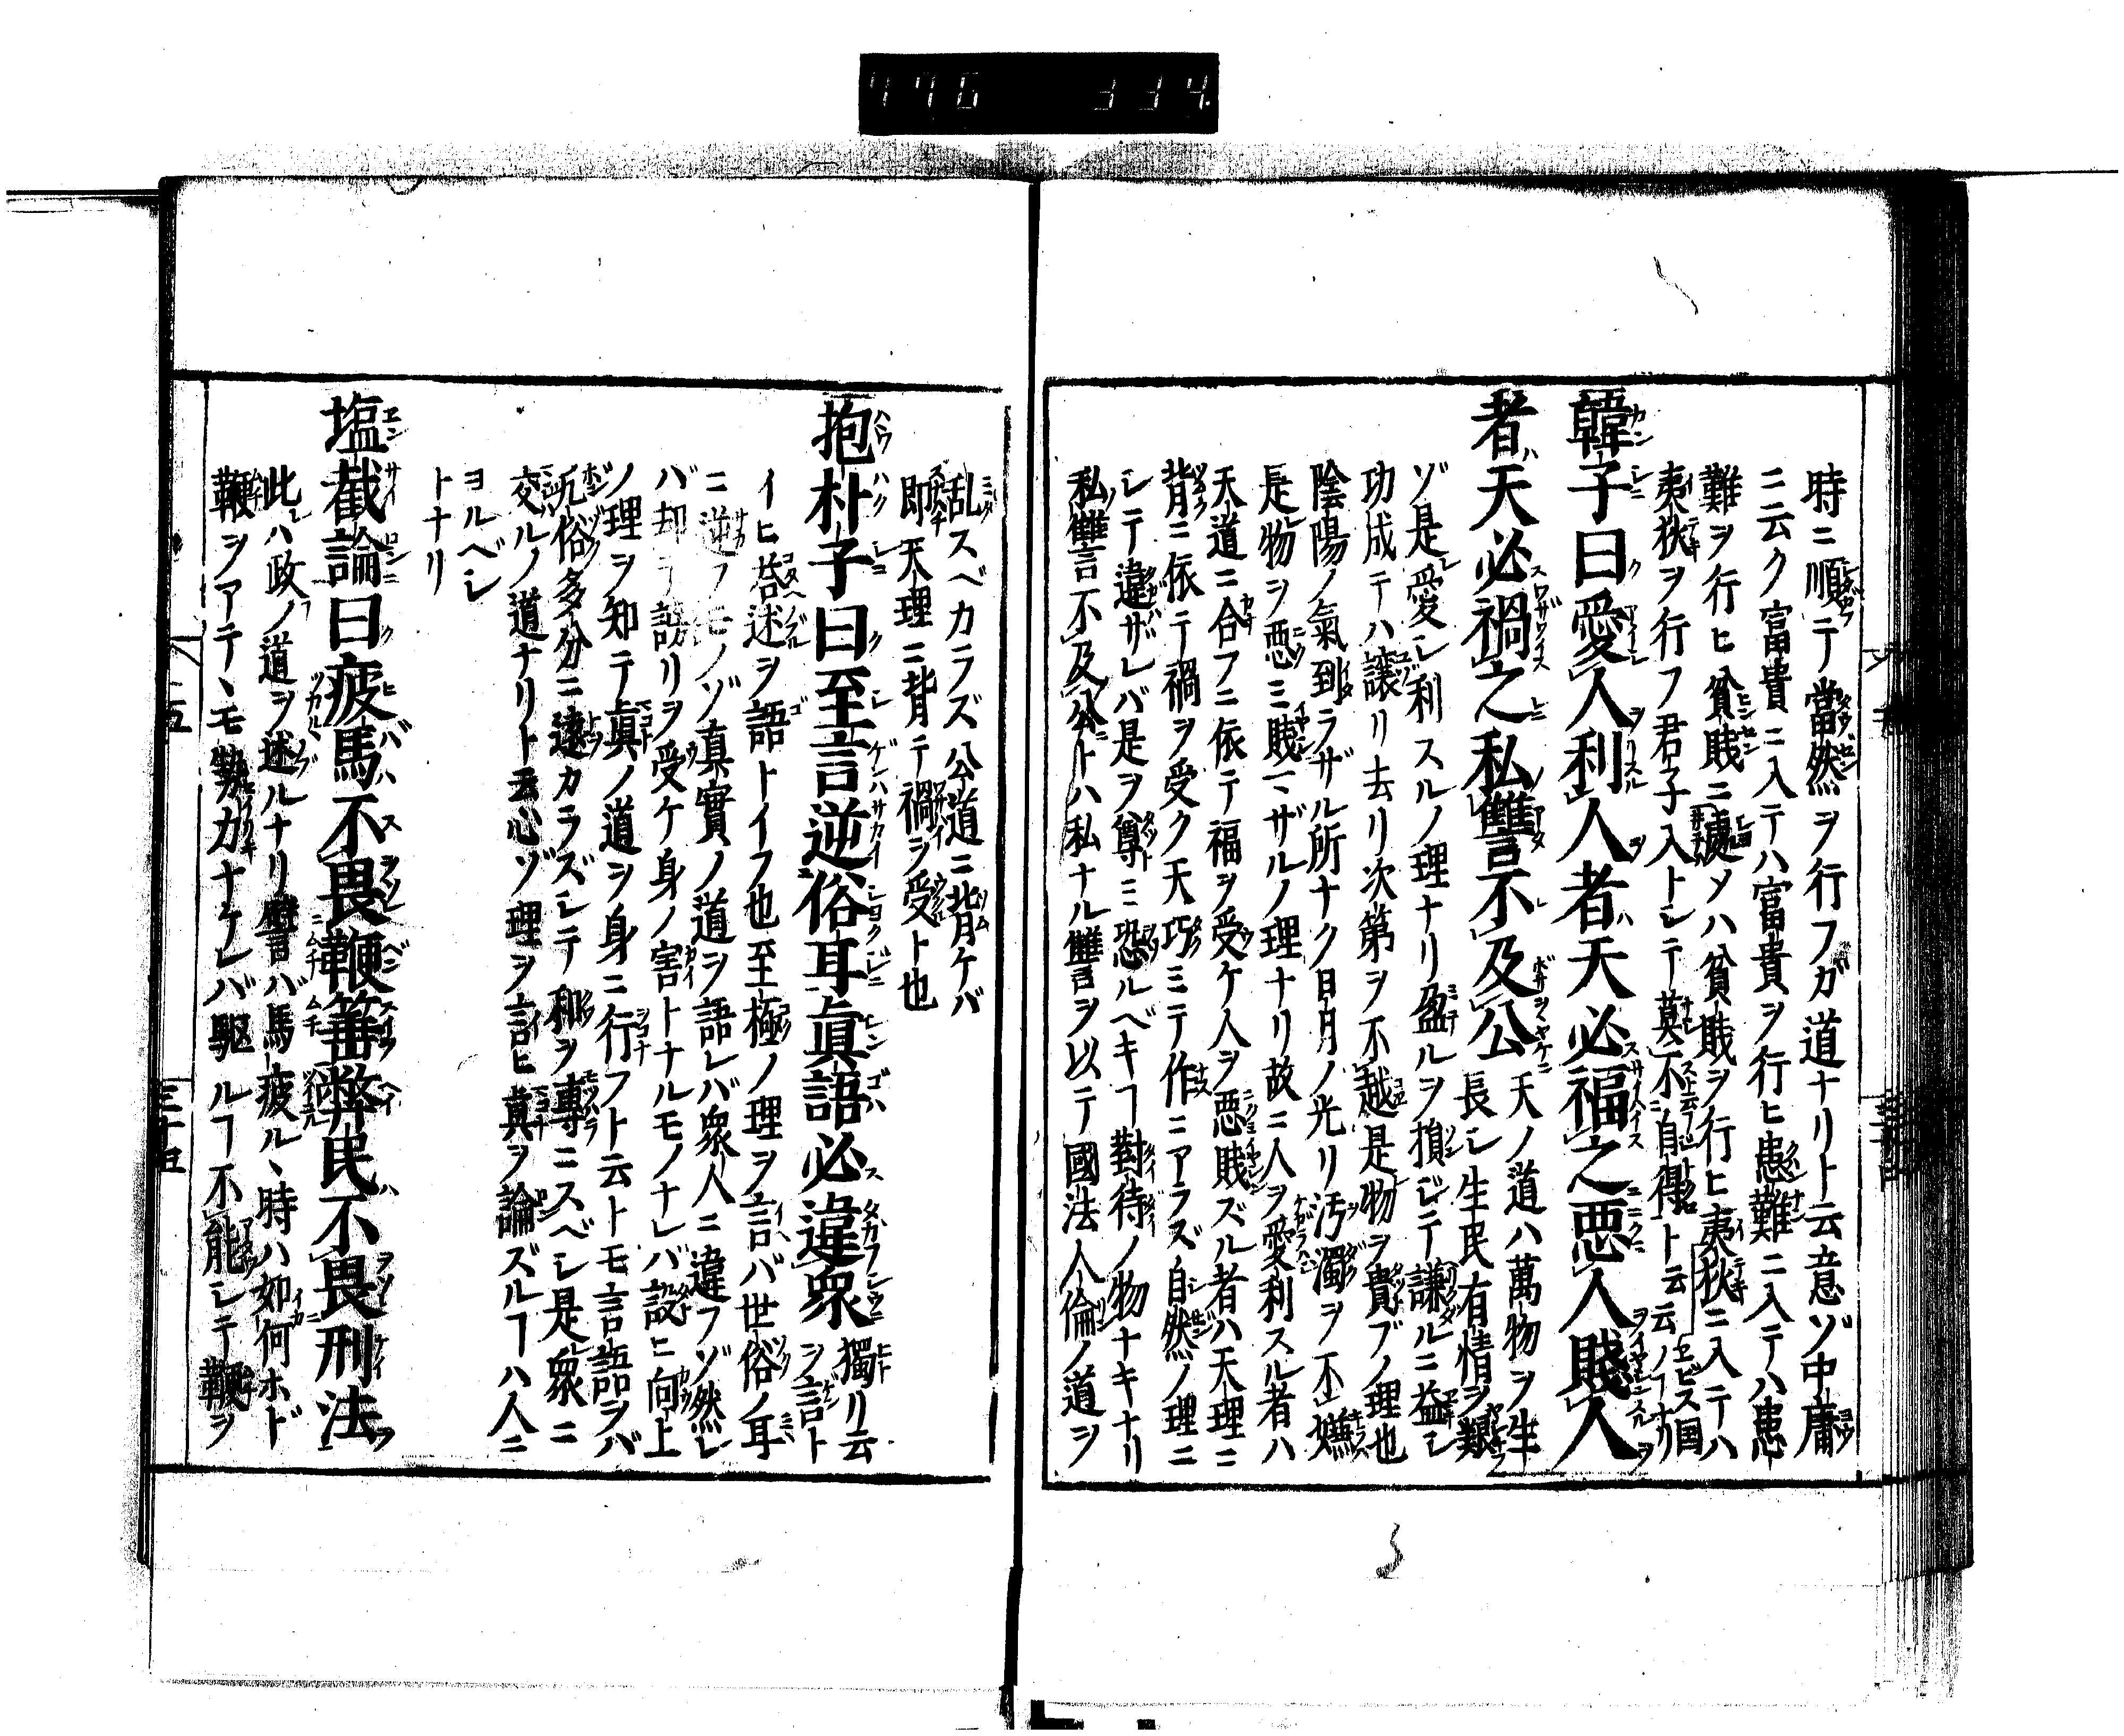 時ニ順テ當然ヲ行フガ道ナリト云意ゾ中庸
ニ云ク富貴ニ入テハ富貴ヲ行ヒ患難ニ入テハ患
難ヲ行ヒ貧賤ニ處メハ貧賤ヲ行ヒ夷狄ニ入テハ
夷狄ヲ行フ君子入トシテ莫不自得ト云云ノヿナリ
韓子曰愛人利人者天必福之悪人賤人
者天必禍之私讐不及公
天ノ道ハ萬物ヲ生
長シ生民有情ヲ艱
ゾ是愛シ利スルノ理ナリ盈ルヲ損ジテ謙ルニ益シ
功成テハ譲リ去リ次第ヲ不越是物ヲ貴ブノ理也
陰陽ノ氣到ラザル所ナク日月ノ光リ汚濁ヲ不嫌
是物ヲ悪ミ賤マザルノ理ナリ故ニ人ヲ愛利スル者ハ
天道ニ合フニ依テ福ヲ受ケ人ヲ悪賤ズル者ハ天理ニ
背ニ依テ禍ヲ受ク天巧ミニテ作ニアラズ自然ノ理ニ
シテ違ザレバ是ヲ尊ミ恐ルベキヿ對待ノ物ナキナリ
私讐不及公トハ私ナル讐ヲ以テ國法人倫ノ道ヲ
乱スベカラズ公道ニ背ケバ
即天理ニ背テ禍ヲ受ト也
抱朴子曰至言逆俗耳真語必違衆
獨リ云
ヲ言ト
イヒ荅述ヲ語トイフ也至極ノ理ヲ言バ世俗ノ耳
ニ逆フモノゾ真實ノ道ヲ語レバ衆人ニ違フゾ然レ
バ却テ謗リヲ受ケ身ノ害トナルモノナレバ設ヒ向上
ノ理ヲ知テ真ノ道ヲ身ニ行フト云トモ言語ヲバ
凢俗多分ニ違カラズシテ和ヲ專ニスベシ是衆ニ
交ルノ道ナリト云心ゾ理ヲ言ヒ真ヲ論ズルヿハ人ニ
ヨルベシ
トナリ
塩截論曰疲馬不畏鞭箠弊民不畏刑法
此ハ政ノ道ヲ述ルナリ譬バ馬疲ルヽ時ハ如何ホド
鞭ヲアテヽモ勢力ナケレバ驅ルヿ不能シテ鞭ヲ